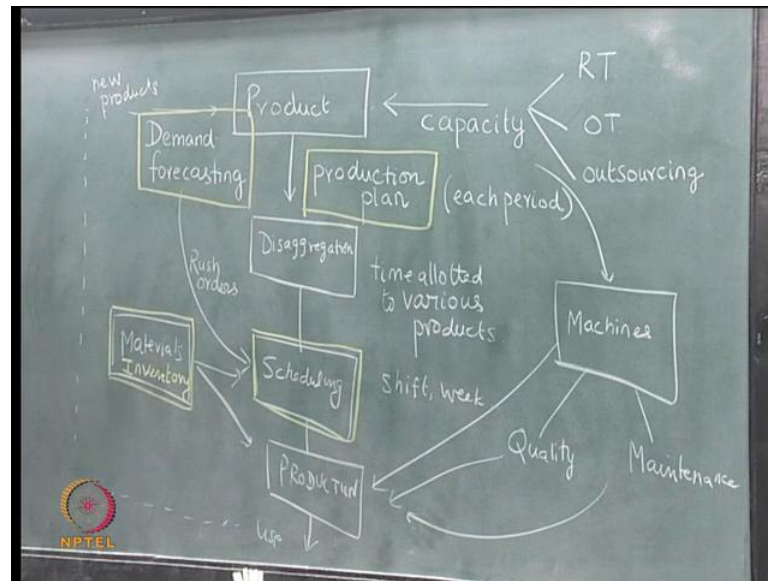 new
products
Product
capacity
RT
OT
outsourcing
Demand
forecasting
production
plan
(each period)
Disaggregation
Rush
orders
time allotted
to various
products
Machines
Materials
Inventory
Scheduling
shift, week
Quality
Maintenance
PRODUCTION
use
NPTEL